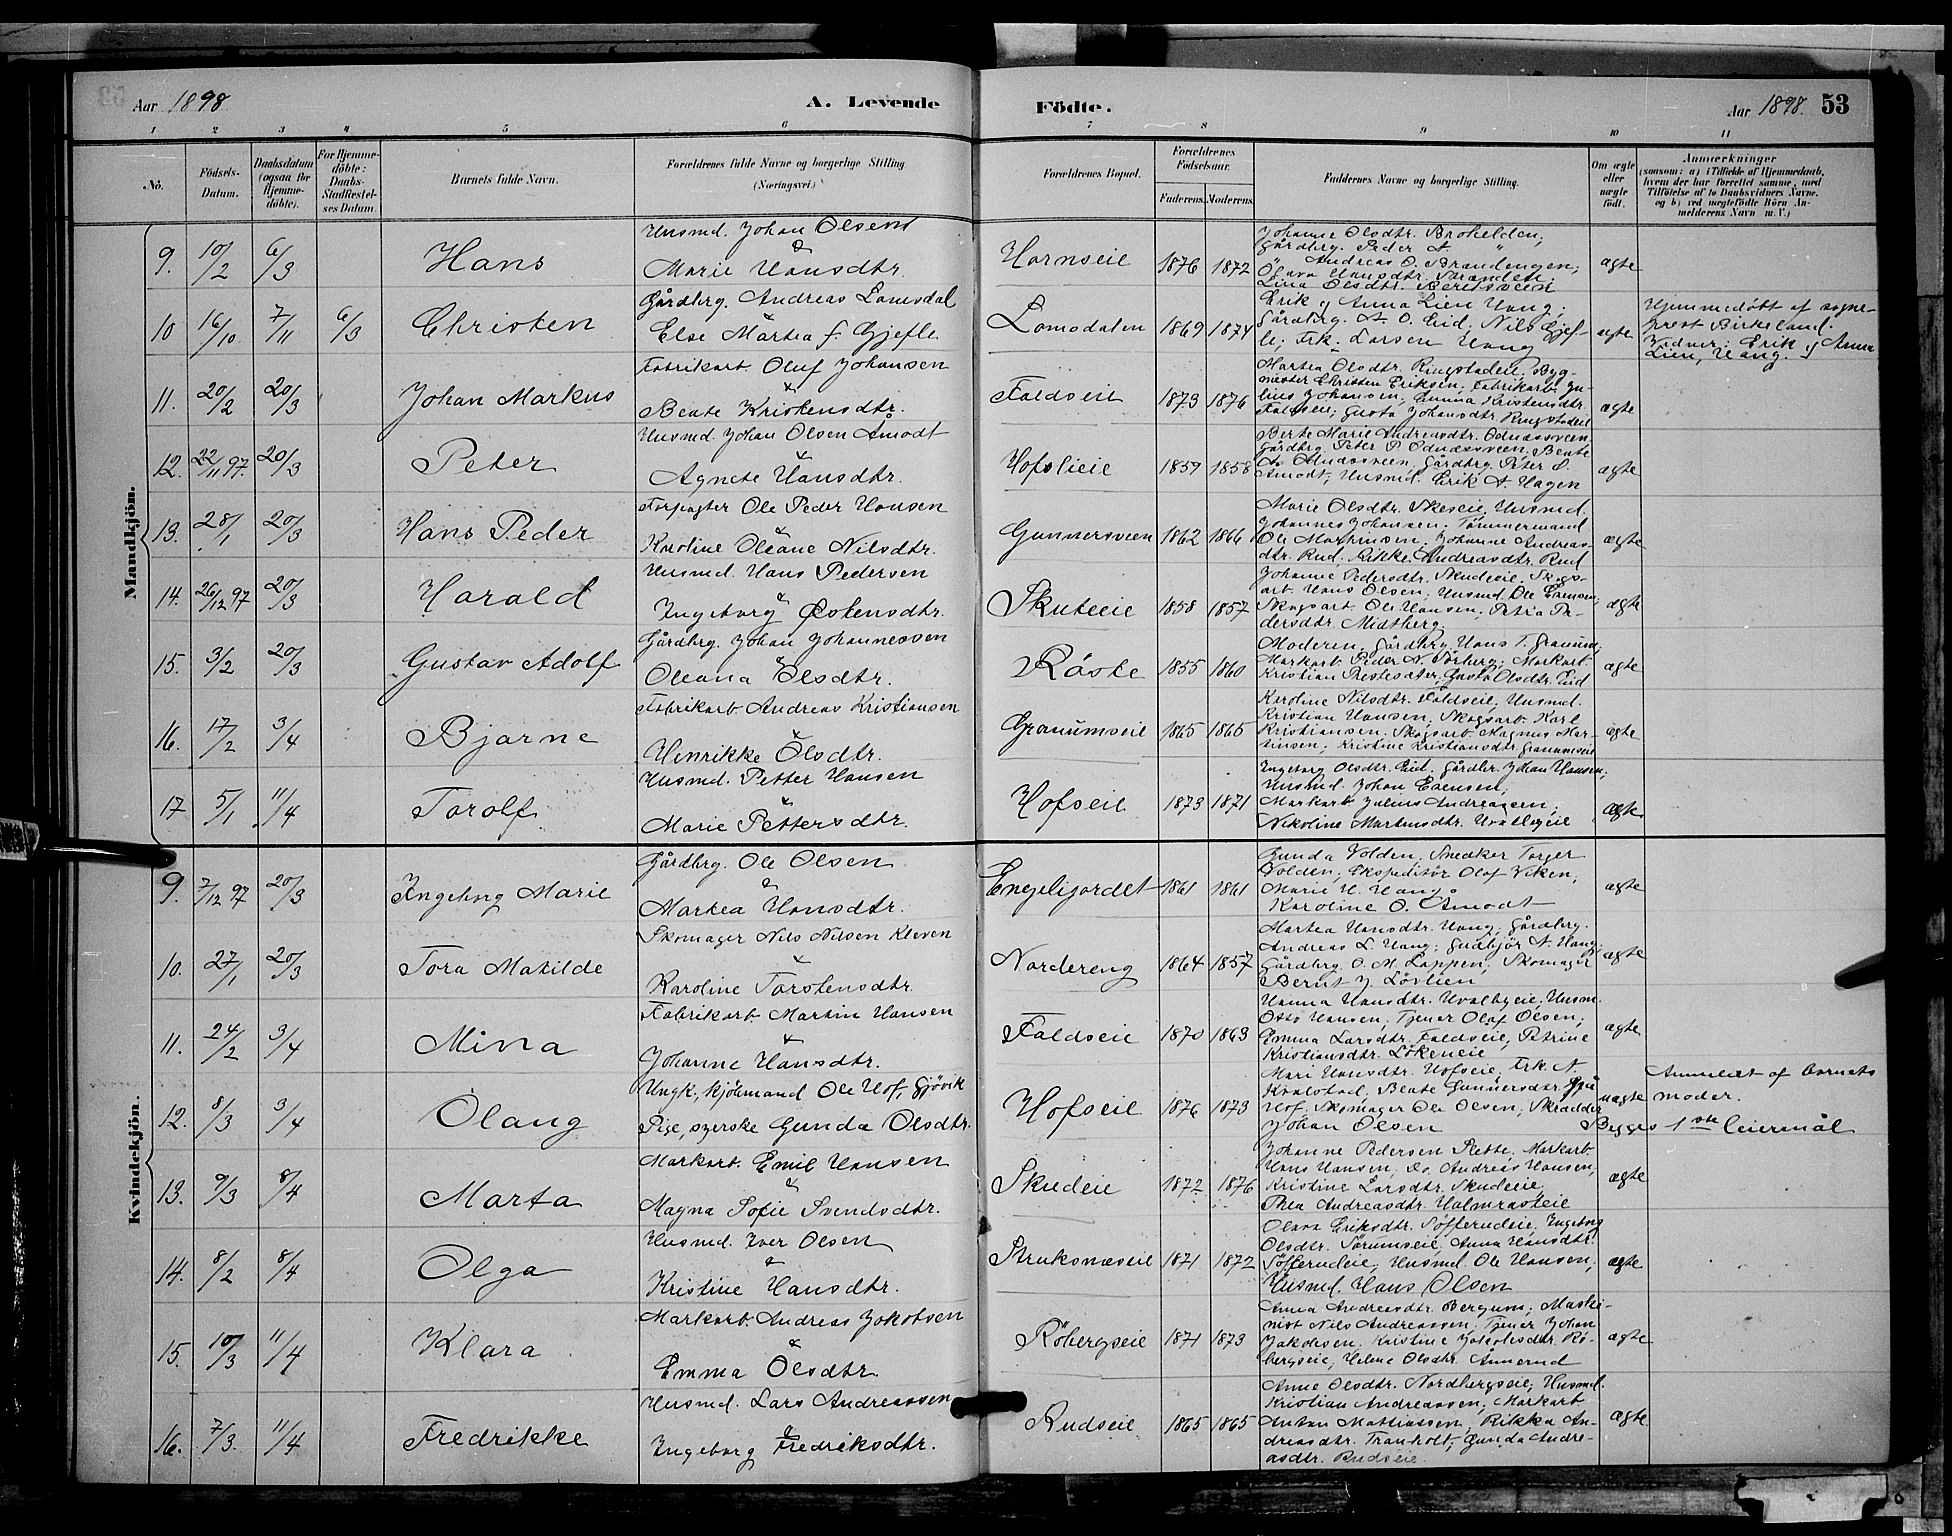 Aar 1898. A. Levende Födte. Aar 1898. 53
1 2 3 4 5 6 7 8 9 10 11
No.
Födsels-Datum.
Daabsdatum (ogsaa for Hjemme-döbte).
For Hjemme-döbte: Daabs-Stadfæstel-ses Datum.
Barnets fulde Navn.
Forældrenes fulde Navne og borgerlige Stilling (Næringsvei.)
Forældrenes Bopæl.
Forældrenes Födselsaar.
Faderens. Moderens.
Faddernes Navne og borgerlige Stilling.
Om ægte eller uægte födt.
Anmærkninger
(saasom: a) i Tilfælde af Hjemmedaab,
hvem der har forrettet samme, med
Tilföielse af to Daabsvidners Navne.
og b) ved uægtefödte Börn An-
melderens Navn m. V.)
Mandkjön.
9. 10/2 6/3 Hans
Husmd. Johan Olsen
&
Marie Hansdtr.
Hornseie 1876 1872
Johanne Olsdtr. Brohelden;
Gårdbrg. Peder A. "
Andreas O. Brændengen;
Lina Olsdtr. Beretsveen
ægte
10 16/10 7/11 6/3 Christen
Gårdbrg. Andreas Lomsdal
&
Else Martea f. Gjefle
Lomsdalen 1869 1874
Erik & Anna Lien Haug;
Gårdbrg. A. O. Eid; Nils Gjef-
le; Frk. Larsen Haug
ægte
Hjemmedöbt af sogne-
prest Birkeland.
Vidner: Erik & Anna
Lien, Haug.
11. 20/2 20/3 Johan Markus
Fabrikarb. Oluf Johansen
&
Beate Kristensdtr.
Faldseie 1873 1876
Martea Olsdtr. Ringstadeie, Byg-
mester Christen Eriksen; Fabrikarb. Ju-
lius Johansen; Gunna Kristensdtr.
Faldseie; Gusta Johansdtr Ringstadeie
ægte
12. 22/11 97. 20/3 Peter
Husmd. Johan Olsen Åmodt
&
Agnete Hansdtr.
Hofslieie 1859 1858
Berte Marie Andreasdtr. Odnæsveen
Gårdbrg Peter P. Odnæsveen, Beate
A. Odnæsveen, Gårdbrg. Peter O.
Åmodt; Husmd. Erik A. Hagen
ægte
13. 28/1 20/3 Hans Peder
Forpagter Ole Peder Hansen
&
Karoline Oleane Nilsdtr.
Gunnersveen 1862 1866
Marie Olsdtr. Skeseie, Husmd.
Johannes Johansen; Tömmermand
Ole Martinsen; Johanne Andreas-
dtr. Rud. Rikke Andreasdtr. Rud
ægte
14. 26/12 97 20/3 Harald
Husmd. Hans Pedersen
&
Ingeborg Østensdtr.
Skuteeie 1858 1857
Johanne Pedersdtr. Skudeeie. Skogs-
arb. Hans Olsen, Husmd. Ole Evensen;
Skogsarb. Ole Hansen; Petra Pe-
dersdtr. Midtberg.
ægte
15. 3/2 20/3 Gustav Adolf
Gårdbrg. Johan Johannessen
&
Oleana Olsdtr.
Råste 1855 1860
Moderen, Gårdbrg. Hans T. Granum;
Markarb. Peder N. Sörberg; Markarb.
Kristian Prestesæter, Gusta Olsdtr. Eid
ægte
16. 17/2 3/4 Bjarne
Fabrikarb. Andreas Kristiansen
&
Henrikke Olsdtr.
Granumseie 1865 1865
Karoline Nilsdtr. Faldseie, Husmd.
Kristian Hansen, Skogsarb. Karl
Kristiansen, Skogsarb. Magnus Mar-
tinsen; Kristine Kristiansdtr. Granumseie
ægte
17 5/1 11/4 Torolf
Husmd. Petter Hansen
&
Marie Pettersdtr.
Hofseie 1873 1871
Ingeborg Olsdtr. Eid. Gårdbr. Johan Hansen;
Husmd. Johan Evensen;
Markarb. Julius Andreasen;
Nikoline Martinsdtr. Hvalbyeie
ægte
Kvindekjön.
9. 7/12 97 20/3 Ingeborg Marie
Gårdbrg. Ole Olsen
&
Martea Hansdtr.
Engelijordet 1861 1861
Gunda Volden, Snedker Torger
Volden; Ekspeditör Olaf Viken;
Marie H. Haug;
Karoline O. Åmodt
ægte
10. 27/1 20/3 Tora Matilde
Skomager Nils Nilsen Kleven
&
Karoline Torstensdtr.
Nordereng 1864 1857
Martea Hansdtr. Haug; Gårdbrg.
Andreas L. Haug; Gudbjör A. Haug;
Gårdbrg. O. M. Lappen; Skomager
Bernt J. Lövlien
ægte
11. 24/2 3/4 Mina
Fabrikarb. Martin Hansen
&
Johanne Hansdtr.
Faldseie 1870 1863
Hanna Hansdtr. Hvalbyeie, Husm.
Otto Hansen, Tjener Olaf Olsen;
Emma Larsdtr. Faldseie, Petrine
Kristiansdtr. Lökeneie
ægte
12. 8/3 3/4 Olaug
Ungk. kjöbmand Ole Hof, Gjövik
Pige, syerske Gunda Olsdtr.
Hofseie 1876 1873
Mari Hansdtr. Hofseie, Frk. A.
Kvalstad, Beate Gunnersdtr.
Hof. Skomager Ole Olsen; Skrædder
Johan Olsen
uægte
Anmeldt af barnets
moder.
Begges 1ste leiermål
13. 9/3 8/4 Marta
Markarb. Emil Hansen
&
Magna Sofie Svendsdtr.
Skudeie 1872 1876
Johanne Pedersen Rette, Markarb.
Hans Hansen, Do. Andreas Hansen,
Kristine Larsdtr. Skudeie;
Thea Andreasdtr. Halmrasteie
ægte
14. 8/2 8/4 Olga
Husmd. Iver Olsen
&
Kristine Hansdtr.
Struksnæseie 1871 1872
Olava Eriksdtr. Töfterudeie, Ingeborg
Olsdtr. Sörumseie, Anna Hansdtr.
Töfterudeie, Husmd. Ole Hansen;
Husmd. Hans Olsen
ægte
15. 10/3 11/4 Klara
Markarb. Andreas Jakobsen
&
Emma Olsdtr.
Röbergseie 1871 1873
Anna Andreasdtr. Bergum; Maski-
nist Nils Andreassen. Tjener Johan
Jakobsen. Kristine Jakobsdtr. Rö-
bergseie, Helene Olsdtr. Ånnerud
ægte
16. 7/3. 11/4 Fredrikke
Husmd. Lars Andreassen
&
Ingeborg Fredriksdtr.
Rudseie 1865 1865
Anne Olsdtr. Nordbergseie; Husmd.
Kristian Andreassen; Markarb.
Anton Mathiassen, Rikka An-
dreasdtr. Tranholt; Gunda Andre-
asdtr. Rudseie
ægte